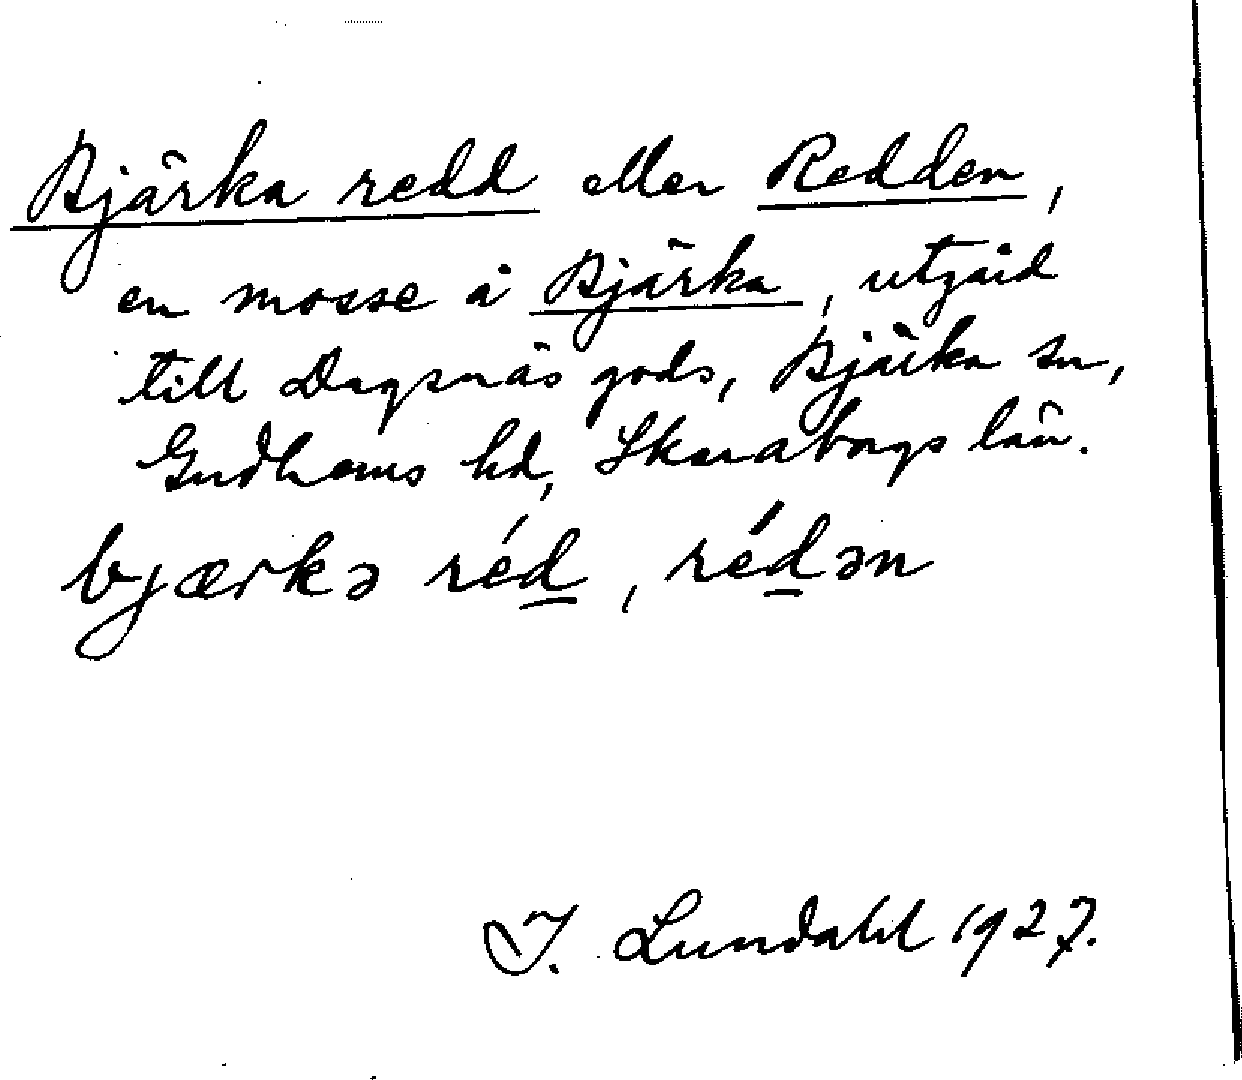 Bjärka redd eller Redden,
en mosse å Bjärka, utgård
till Dagsnäs gods, Bjärka sn,
Gudhems hd, Skaraborgs län.
bjærkə réd, rédən
I. Lundahl 1927.